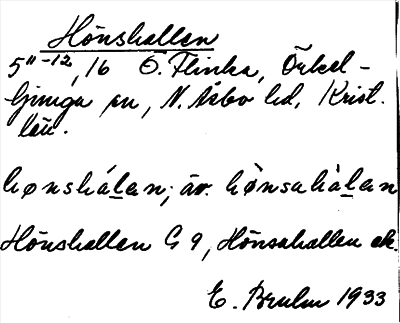 Hönshallen
5"-12, 16 Ö. Flinka, Örkel-
ljunga sn, N. Åsbo hd, Krist.
län.
hønshálan; äv. hønsahàlan
Hönshallen G 9, Hönsahallen ek.
E. Bruhn 1933